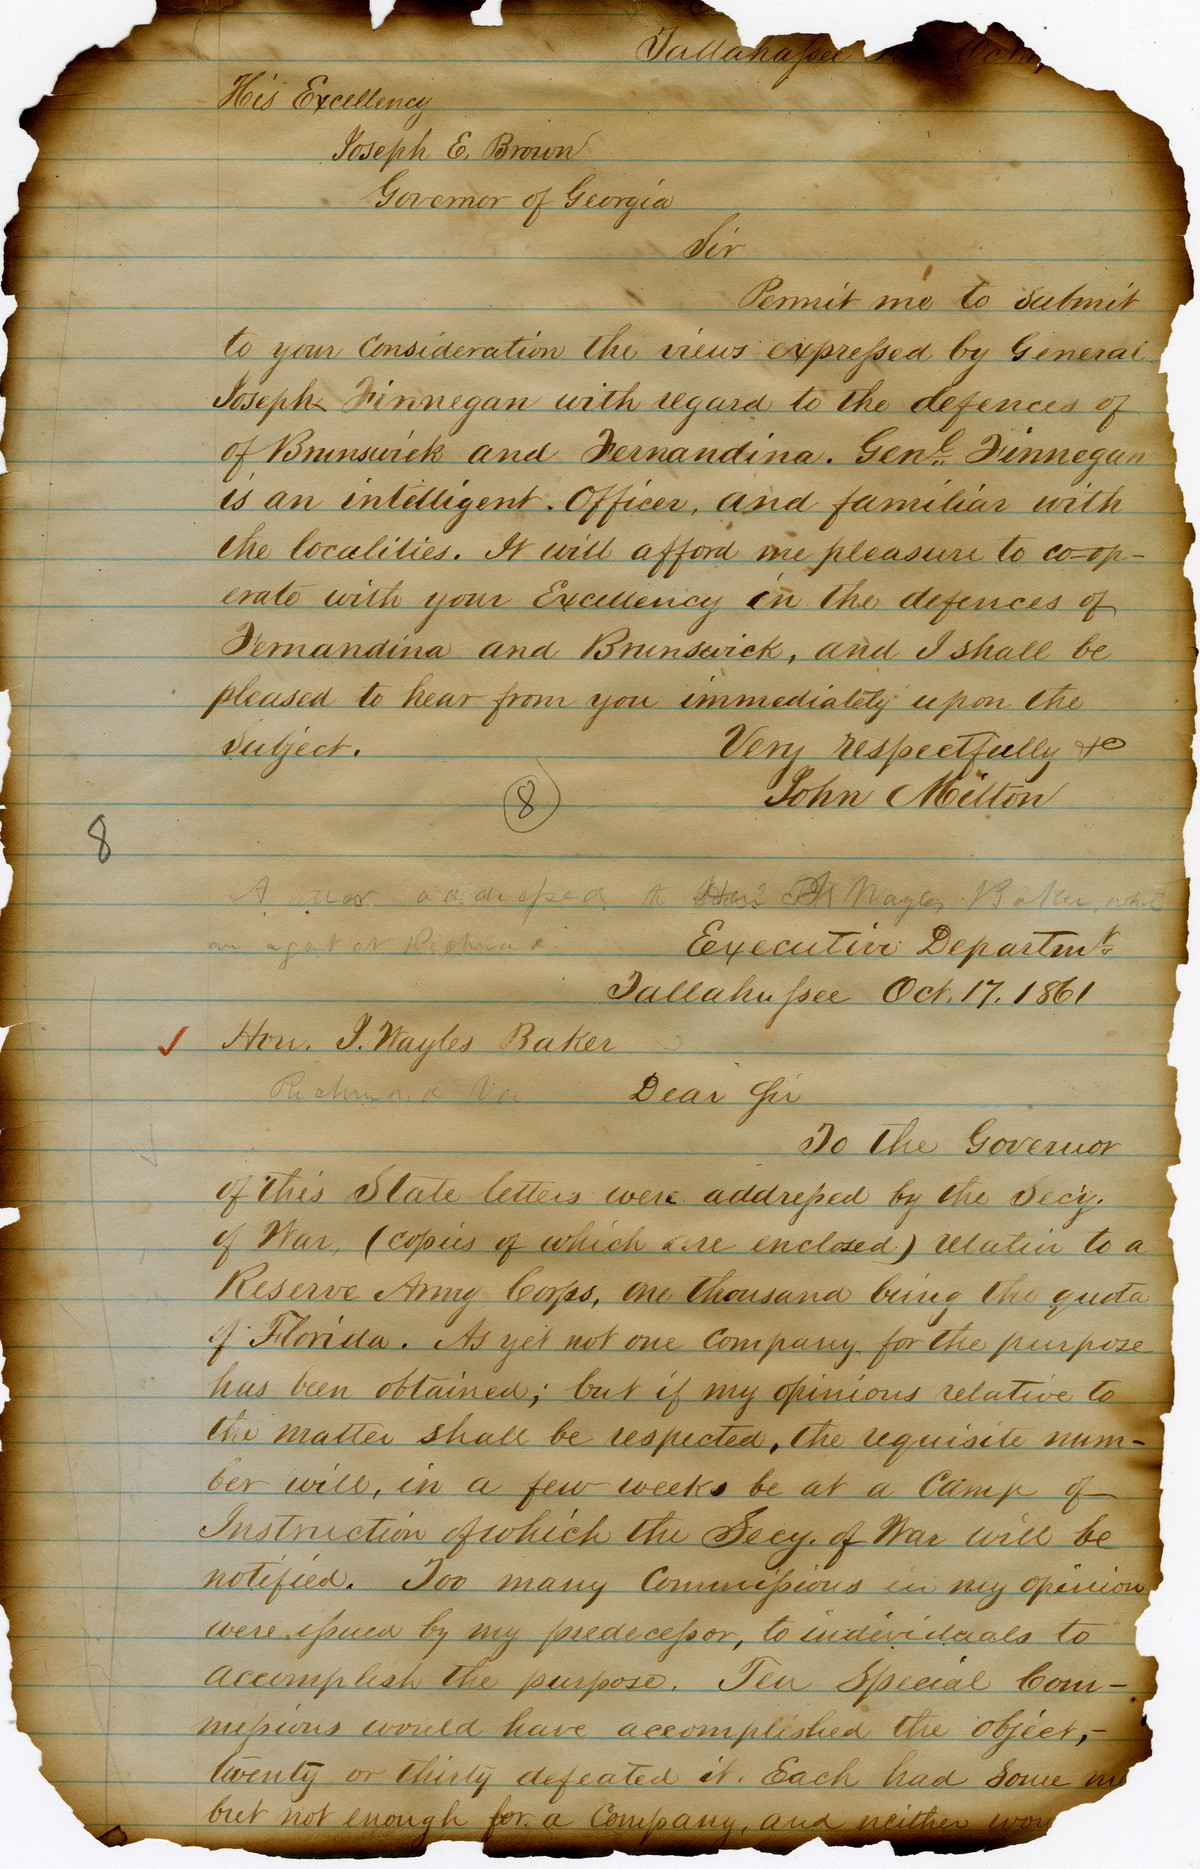 Tallahassee
His Excellency
Joseph E. Brown
Governor of Georgia
Sir
Permit me to submit
to your consideration the views expressed by General
Joseph Finnegan with regard to the defences of
of Brunswick and Fernandina. Genl. Finnegan
is an intelligent. Officer, and familiar with
the localities. It will afford me pleasure to co-op-
erate with your Excellency in the defences of
Fernandina and Brunswick, and I shall be
pleased to hear from you immediately upon the
subject. Very respectfully &c
John Milton
8
8
A letter addressed to Wayles Baker, while
an agent at Richmond.
Executive Departmt.
Tallahassee Oct. 17. 1861
Hon. J. Wayles Baker
Richmond Va
Dear Sir
To the Governor
of this State letters were addressed by the Secy.
of War, (copies of which are enclosed) relative to a
Reserve Army Corps, one thousand being the quota
of Florida. As yet not one company for the purpose
has been obtained; but if my opinions relative to
the matter shall be respected, the requisite num-
ber will, in a few weeks be at a Camp of
Instruction of which the Secy. of War will be
notified. Too many Commissions in my opinion
were issued by my predecessor, to individuals to
accomplish the purpose. Ten Special Com-
missions would have accomplished the object,-
twenty or thirty defeated it. Each had some
but not enough for a Company, and neither